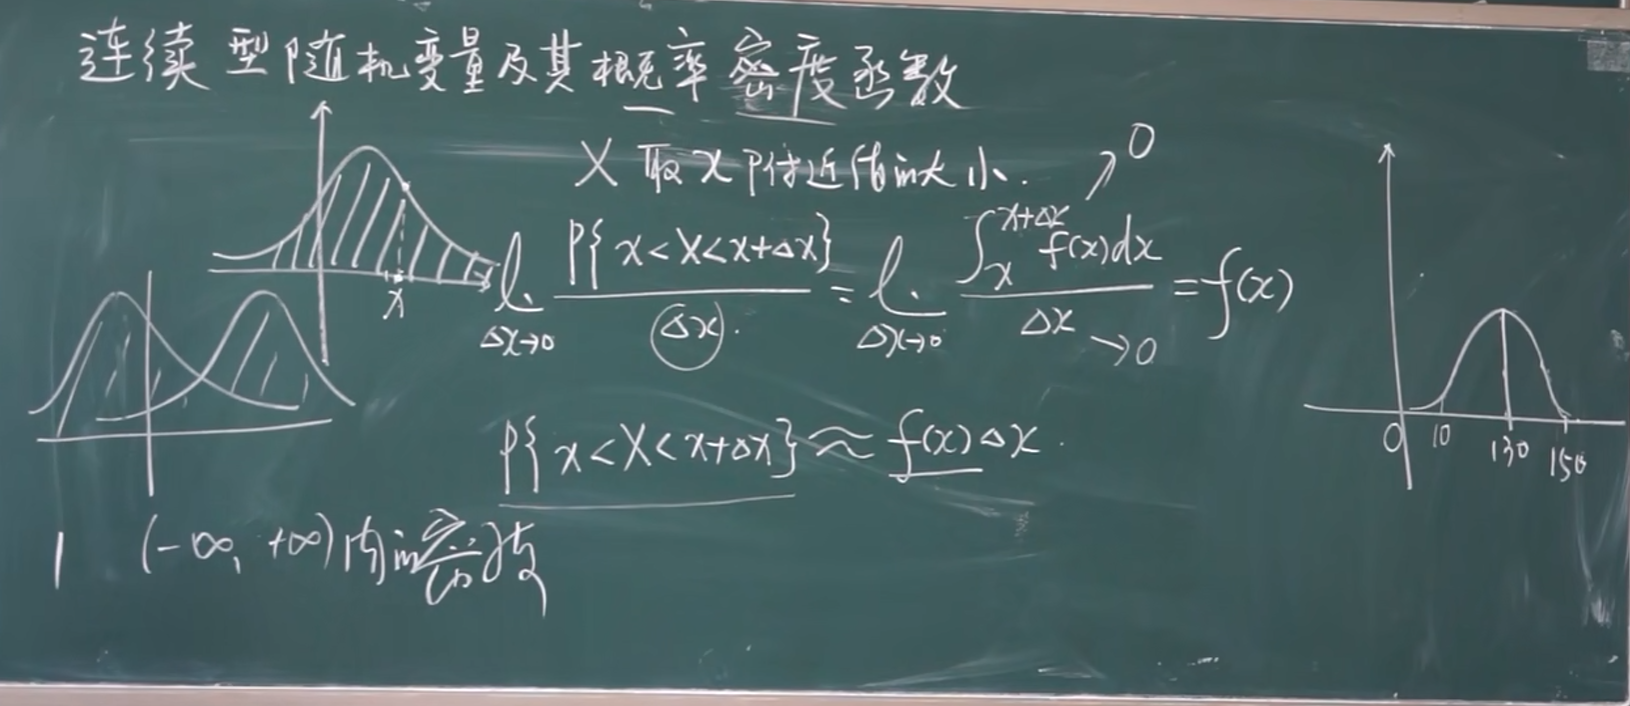 连续型随机变量及其概率密度函数
X取x附近值的大小.
lim_{Δx→0} P{x<X<x+Δx}/Δx. = lim_{Δx→0} ∫_x^{x+Δx} f(x)dx/Δx = f(x)
→0
→0
x
P{x<X<x+Δx}≈f(x)Δx.
0 10 130 150
1 (-∞, +∞)内的密